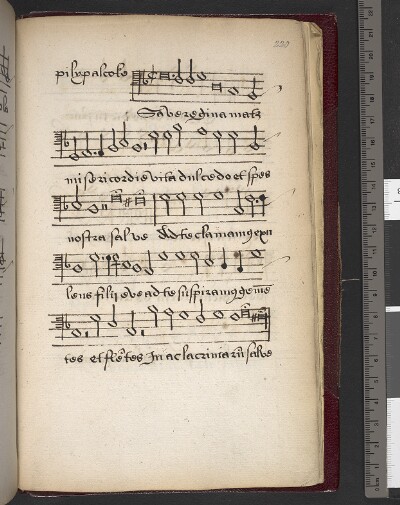 220
Salve regina mat͛
misericordie vita dulcedo et spes
nostra salve Ad te clamamus exu
lens filii eve ad te suspiramus geme
tes et flētes In ac lacrimarū salve